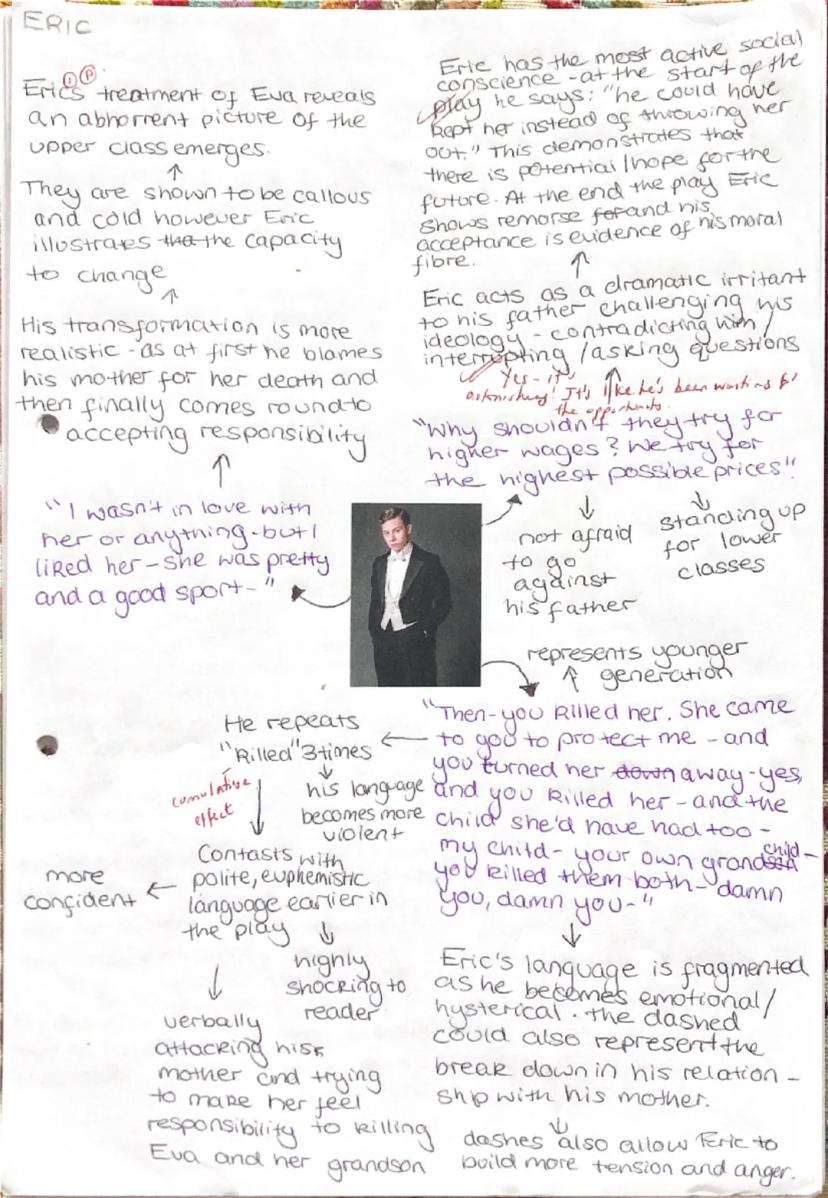 ERIC
① Ⓟ
Eric's treatment of Eva reveals
an abhorrent picture of the
upper class emerges.
They are shown to be callous
and cold however Eric
illustrates tha the capacity
to change
His transformation is more
realistic - as at first he blames
his mother for her death and
then finally comes round to
accepting responsibility
"I wasn't in love with
her or anything - but I
liked her - she was pretty
and a good sport - "
Eric has the most active social
conscience - at the start of the
play he says: "he could have
kept her instead of throwing her
out." This demonstrates that
there is potential / hope for the
future. At the end the play Eric
shows remorse for and his
acceptance is evidence of his moral
fibre.
Eric acts as a dramatic irritant
to his father challenging his
ideology - contradicting him /
interrupting / asking questions
Yes - it's
astonishing! It's like he's been waiting for
the opportunity.
"Why shouldn't they try for
higher wages? We try for
the highest possible prices"
not afraid
to go
against
his father
standing up
for lower
classes
represents younger
generation
"Then - you killed her. She came
to you to protect me - and
you turned her down away - yes,
and you killed her - and the
child she'd have had too -
my child - your own grandchild -
you killed them both - damn
you, damn you - "
He repeats
"killed" 3 times
his language
becomes more
violent
cumulative
effect
Contasts with
polite, euphemistic
language earlier in
the play
more
confident
highly
shocking to
reader
verbally
attacking his
mother and trying
to make her feel
responsibility to killing
Eva and her grandson
Eric's language is fragmented
as he becomes emotional /
hysterical. the dashed
could also represent the
break down in his relation -
ship with his mother.
dashes also allow Eric to
build more tension and anger.